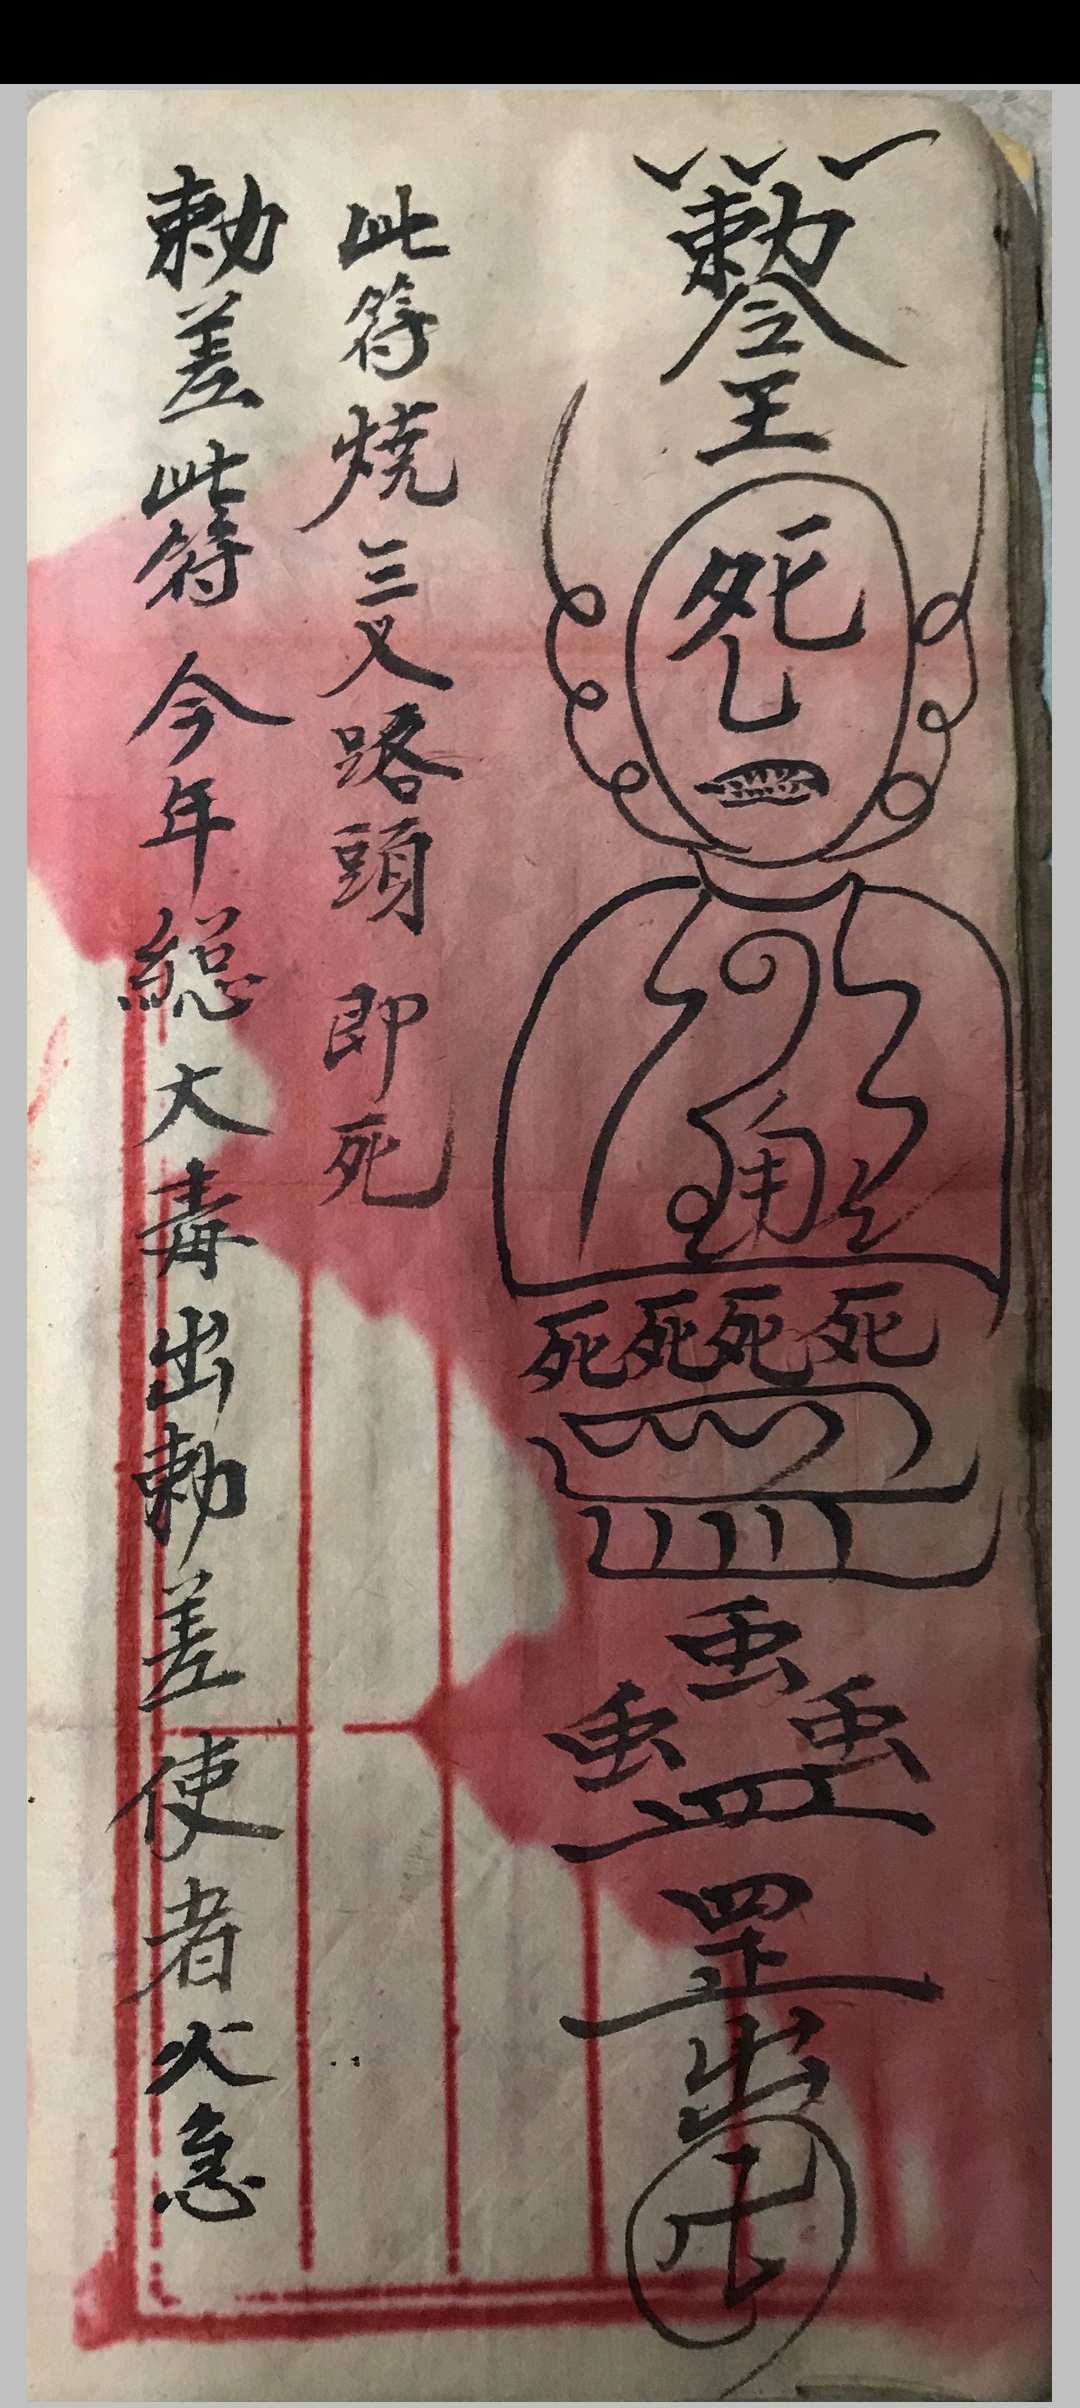 勅令
王
死
角
死死死死
蚩蚩蚩
罡
出
此符燒三叉路頭即死
勅差此符今年総大毒出勅差使者火急